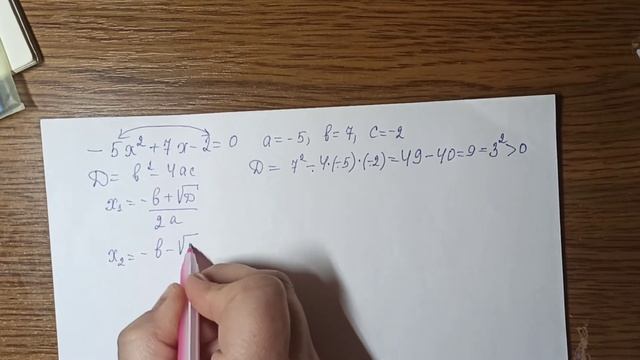 - 5x² + 7x - 2 = 0 a = -5, b = 7, c = -2
D = b² - 4ac D = 7² - 4·(-5)·(-2) = 49 - 40 = 9 = 3² > 0
x₁ = -b + √D / 2a
x₂ = - b - √